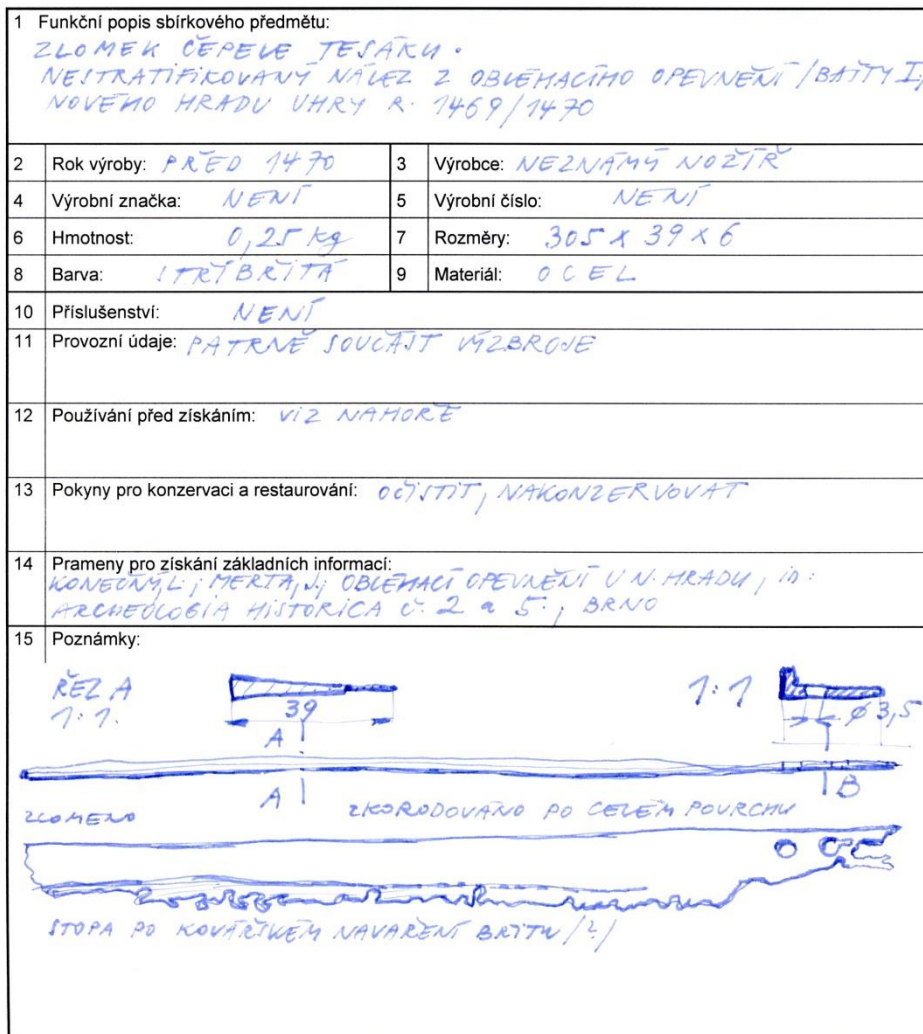 1 Funkční popis sbírkového předmětu:
ZLOMEK ČEPELE TESÁKU.
NESTRATIFIKOVANÝ NÁLEZ Z OBLÉHACÍHO OPEVNĚNÍ /BAŠTY I/
NOVÉHO HRADU UHRY R. 1469/1470
2 Rok výroby: PŘED 1470 3 Výrobce: NEZNÁMÝ NOŽÍŘ
4 Výrobní značka: NENÍ 5 Výrobní číslo: NENÍ
6 Hmotnost: 0,25 kg 7 Rozměry: 305 X 39 X 6
8 Barva: STŘÍBŘITÁ 9 Materiál: OCEL
10 Příslušenství: NENÍ
11 Provozní údaje: PATRNĚ SOUČÁST VÝZBROJE
12 Používání před získáním: VIZ NAHOŘE
13 Pokyny pro konzervaci a restaurování: OČISTIT, NAKONZERVOVAT
14 Prameny pro získání základních informací:
KONEČNÝ, L.; MERTA, J.; OBLÉHACÍ OPEVNĚNÍ U N. HRADU, in:
ARCHEOLOGIA HISTORICA č. 2 a 5., BRNO
15 Poznámky:
ŘEZ A
1:1.
39
1:1
ø 3,5
A
A
B
ZLOMENO
ZKORODOVÁNO PO CELÉM POVRCHU
STOPA PO KOVÁŘSKÉM NAVAŘENÍ BŘITU /?/